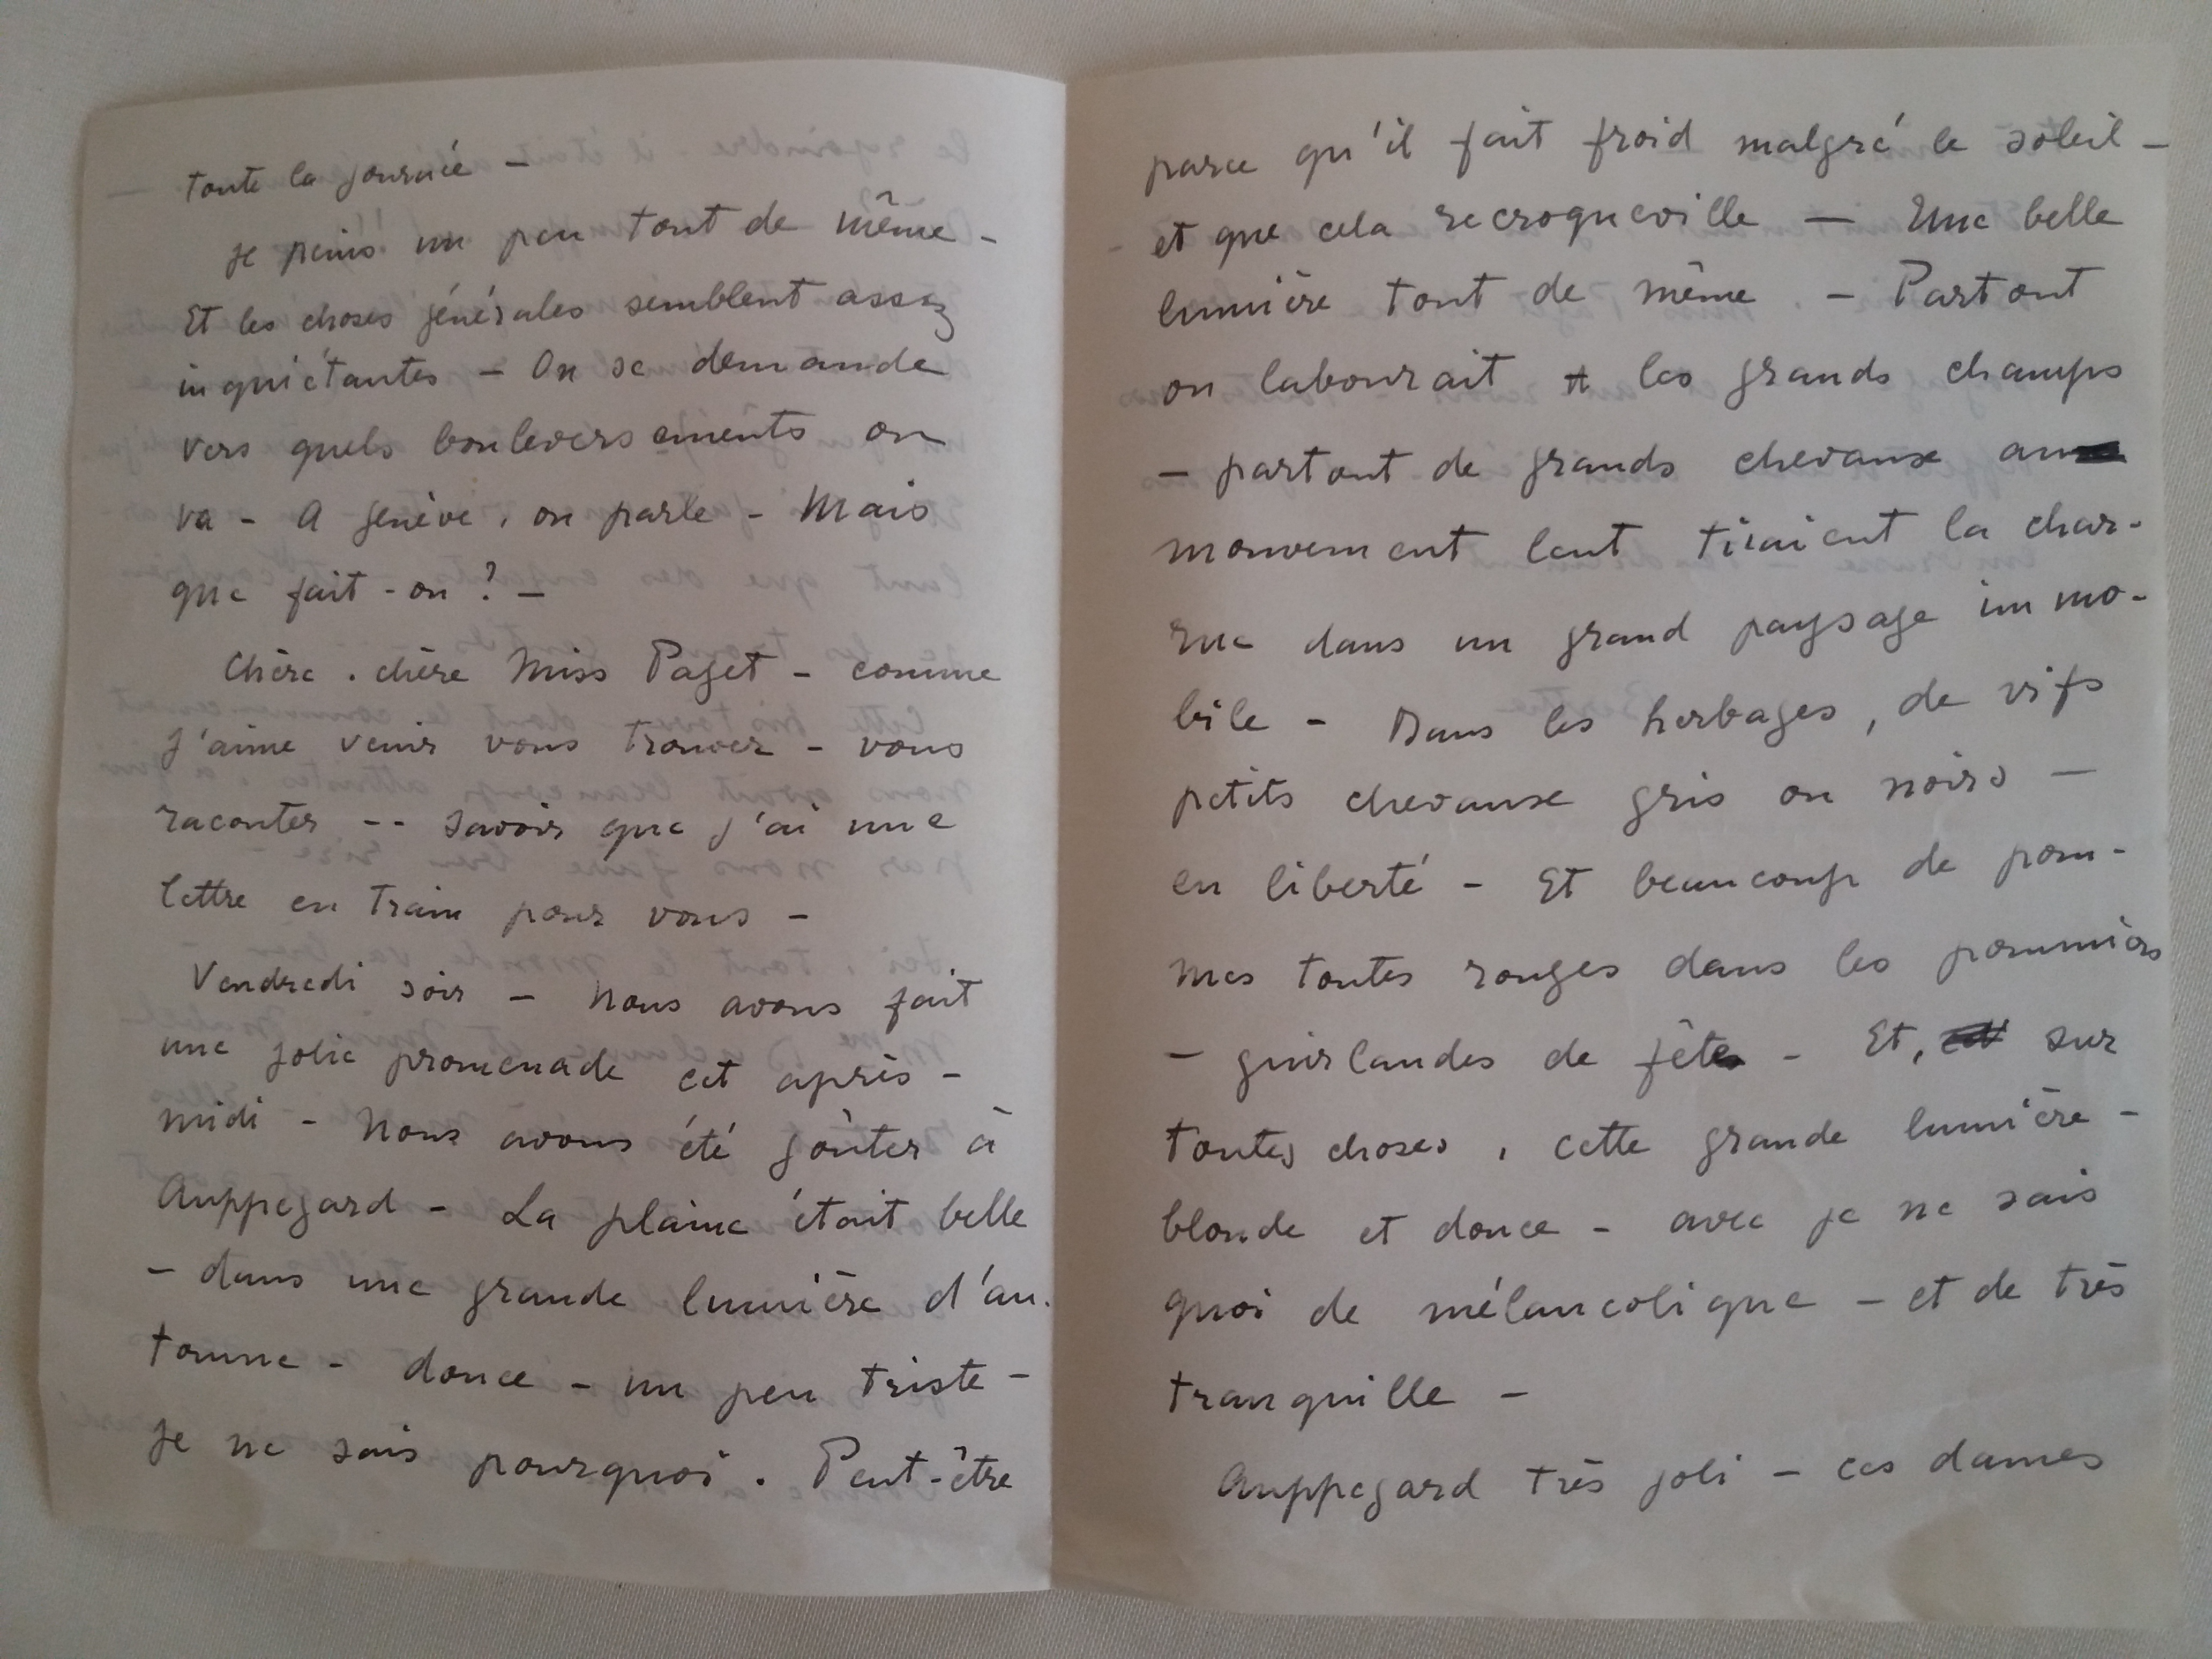 toute la journée –
je peins un peu tout de même –
Et les choses générales semblent assez
inquiétantes – On se demande
vers quels bouleversements on
va – A Genève, on parle – Mais
que fait-on ? –
Chère, chère Miss Paget – comme
j'aime venir vous trouver – vous
raconter -- savoir que j'ai une
lettre en train pour vous –
Vendredi soir – Nous avons fait
une jolie promenade cet après-
midi – Nous avons été goûter à
Auppegard – La plaine était belle
– dans une grande lumière d'au-
tomne – douce – un peu triste –
je ne sais pourquoi. Peut-être
parce qu'il fait froid malgré le soleil –
et que cela recroqueville – Une belle
lumière tout de même – Partout
on labourait les grands champs
– partout de grands chevaux au
mouvement lent tiraient la char-
rue dans un grand paysage immo-
bile – Dans les herbages, de vifs
petits chevaux gris ou noirs –
en liberté – Et beaucoup de pom-
mes toutes rouges dans les pommiers
– guirlandes de fête – Et, sur
toutes choses, cette grande lumière –
blonde et douce – avec je ne sais
quoi de mélancolique – et de très
tranquille –
Auppegard très joli – ces dames